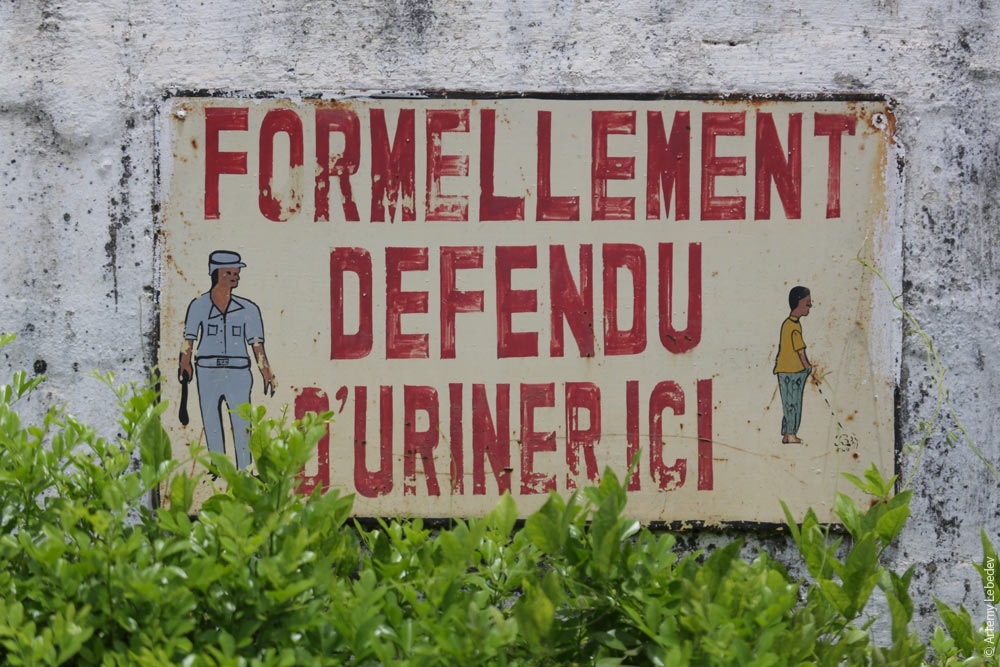 FORMELLEMENT
DEFENDU
D'URINER ICI
© Artemy Lebedev